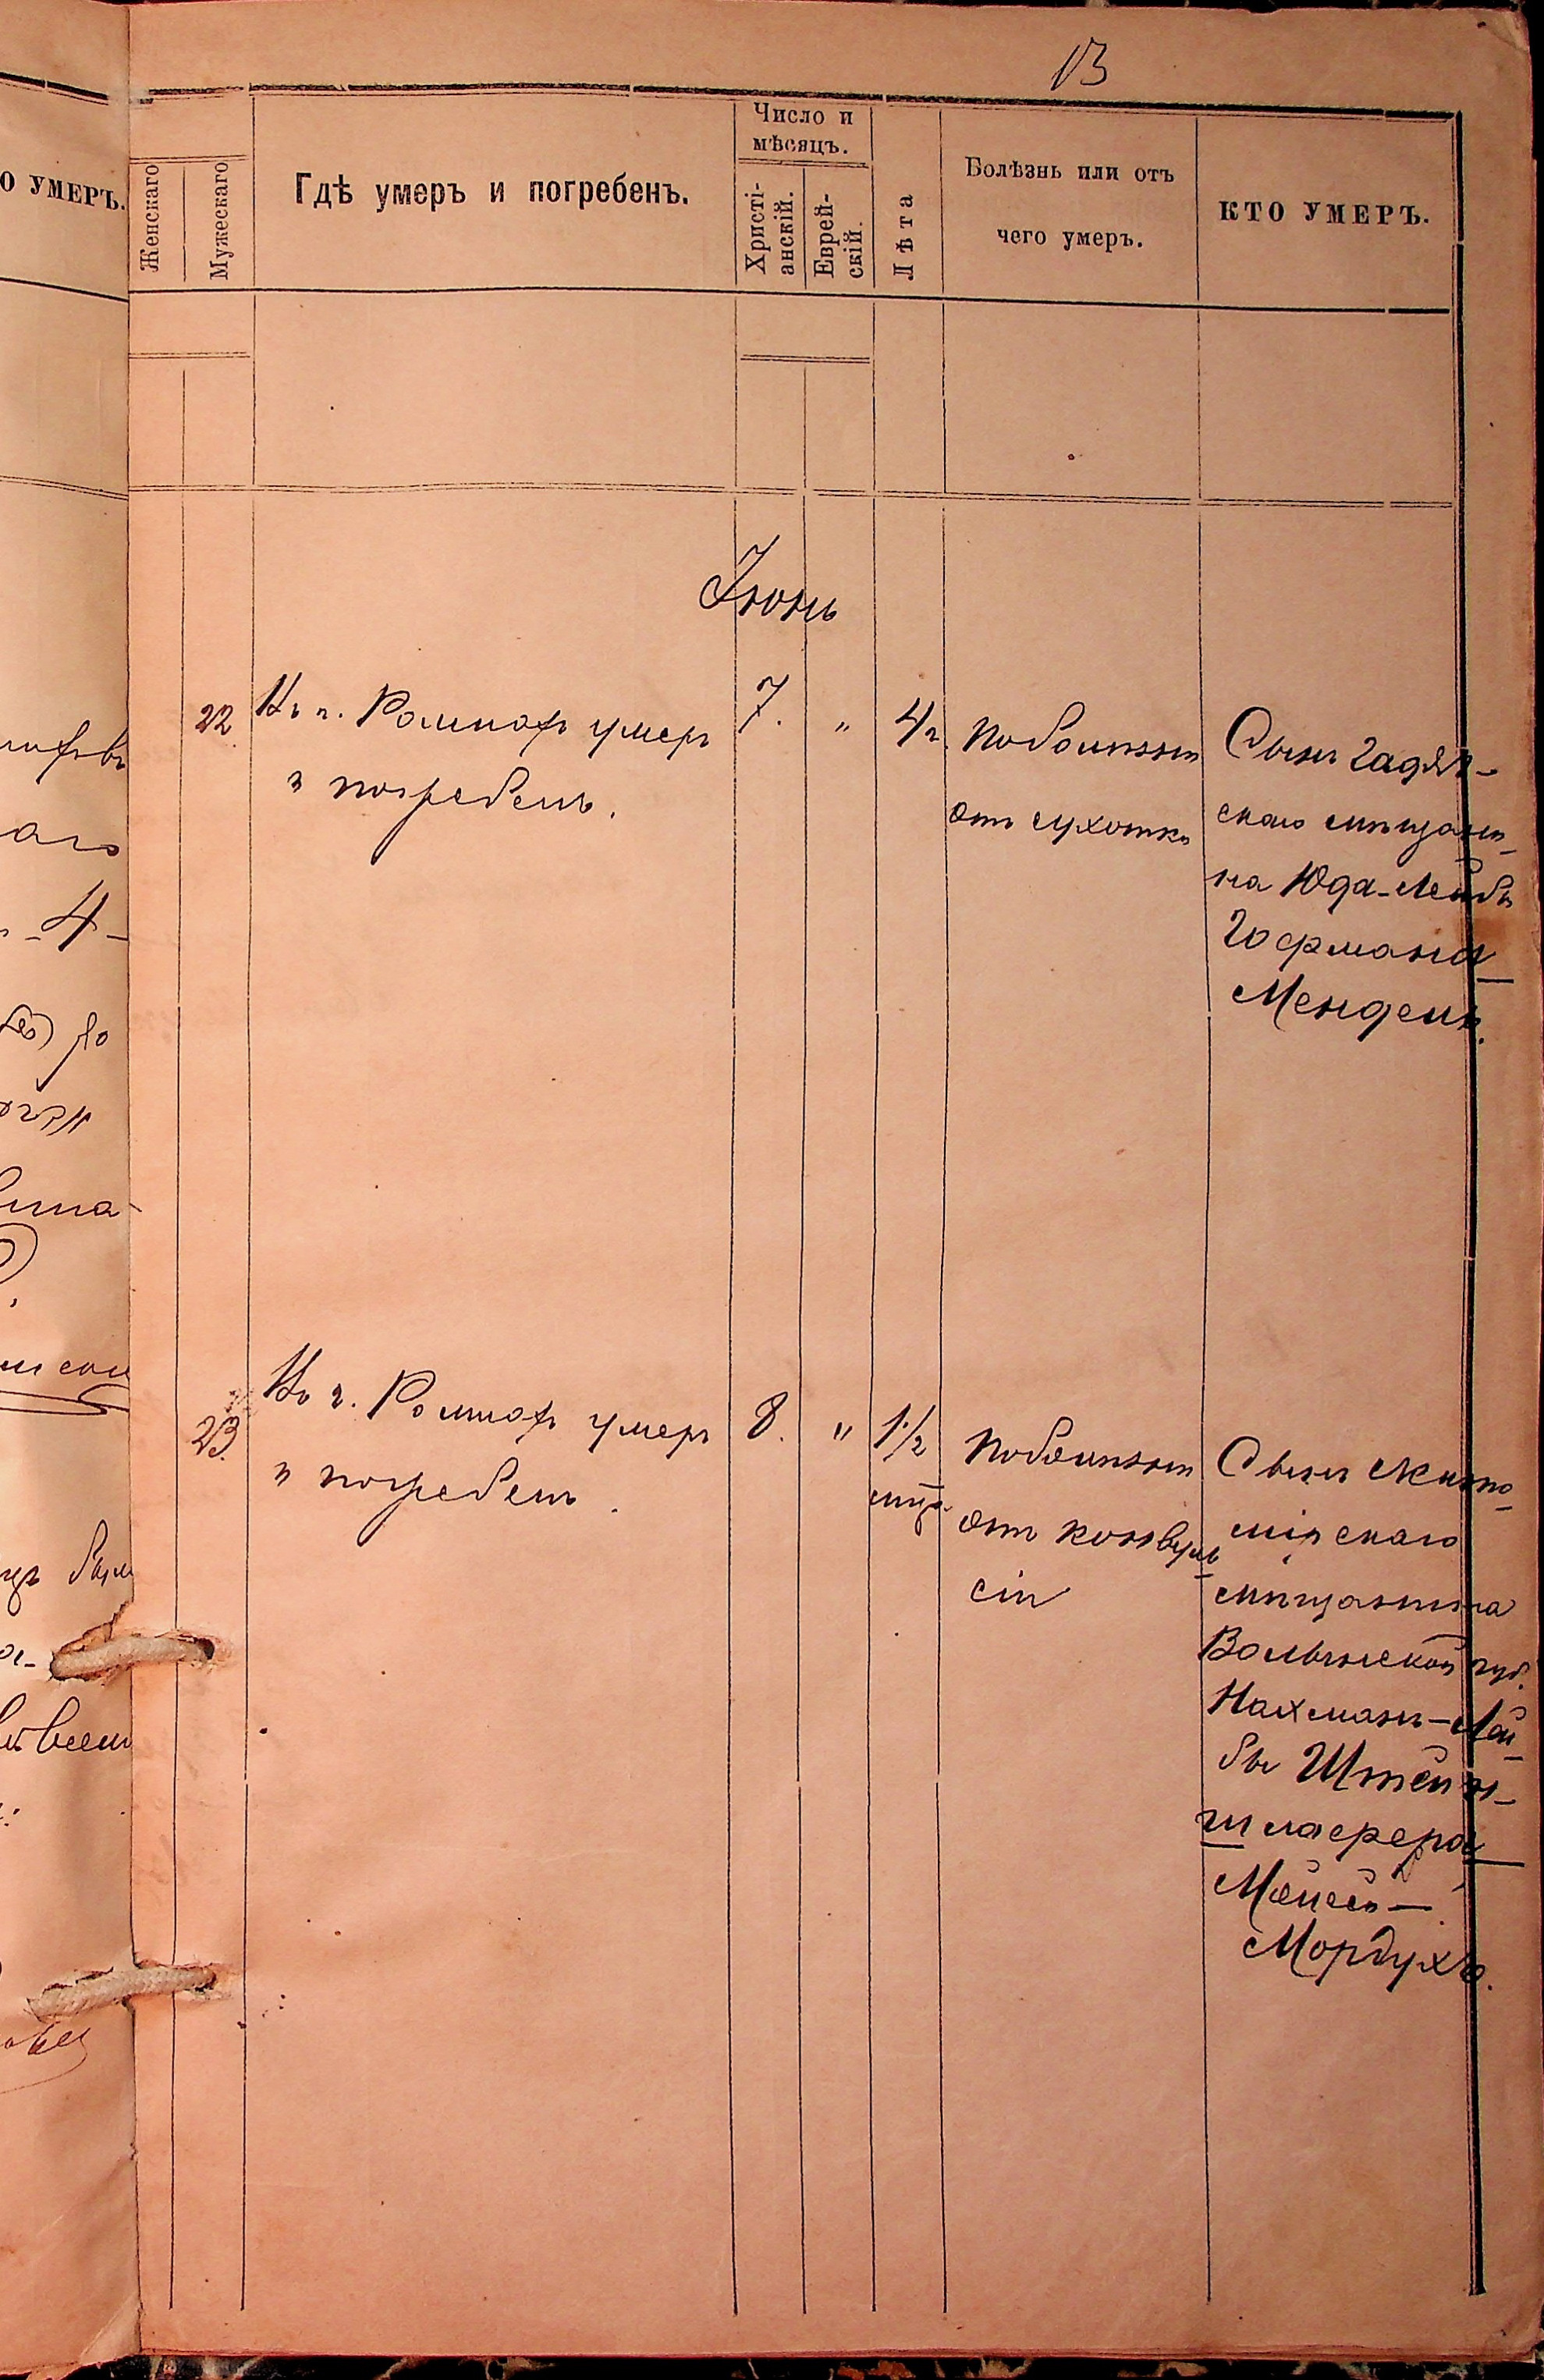 13
О УМЕРЪ.
Женскаго
Мужескаго
Гдѣ умеръ и погребенъ.
Число и
мѣсяцъ.
Христі-
анскій.
Еврей-
скій.
Лѣта
Болѣзнь или отъ
чего умеръ.
КТО УМЕРЪ.
Іюнь
22
Въ г. Ромнахъ умеръ
и погребенъ.
7.
"
4 г.
По болѣзни
отъ сухотки
Сынъ Гадяч-
скаго мѣщани-
на Юда-Лейбы
Гофмана
Мендель.
23.
Въ г. Ромнахъ умеръ
и погребенъ.
8.
"
1½
мѣс.
По болѣзни
отъ конвуль-
сіи
Сынъ Жито-
мірскаго
мѣщанина
Волынской губ.
Нахманъ-Лей-
бы Штейн-
шлефера
Мойсей-
Мордухъ.